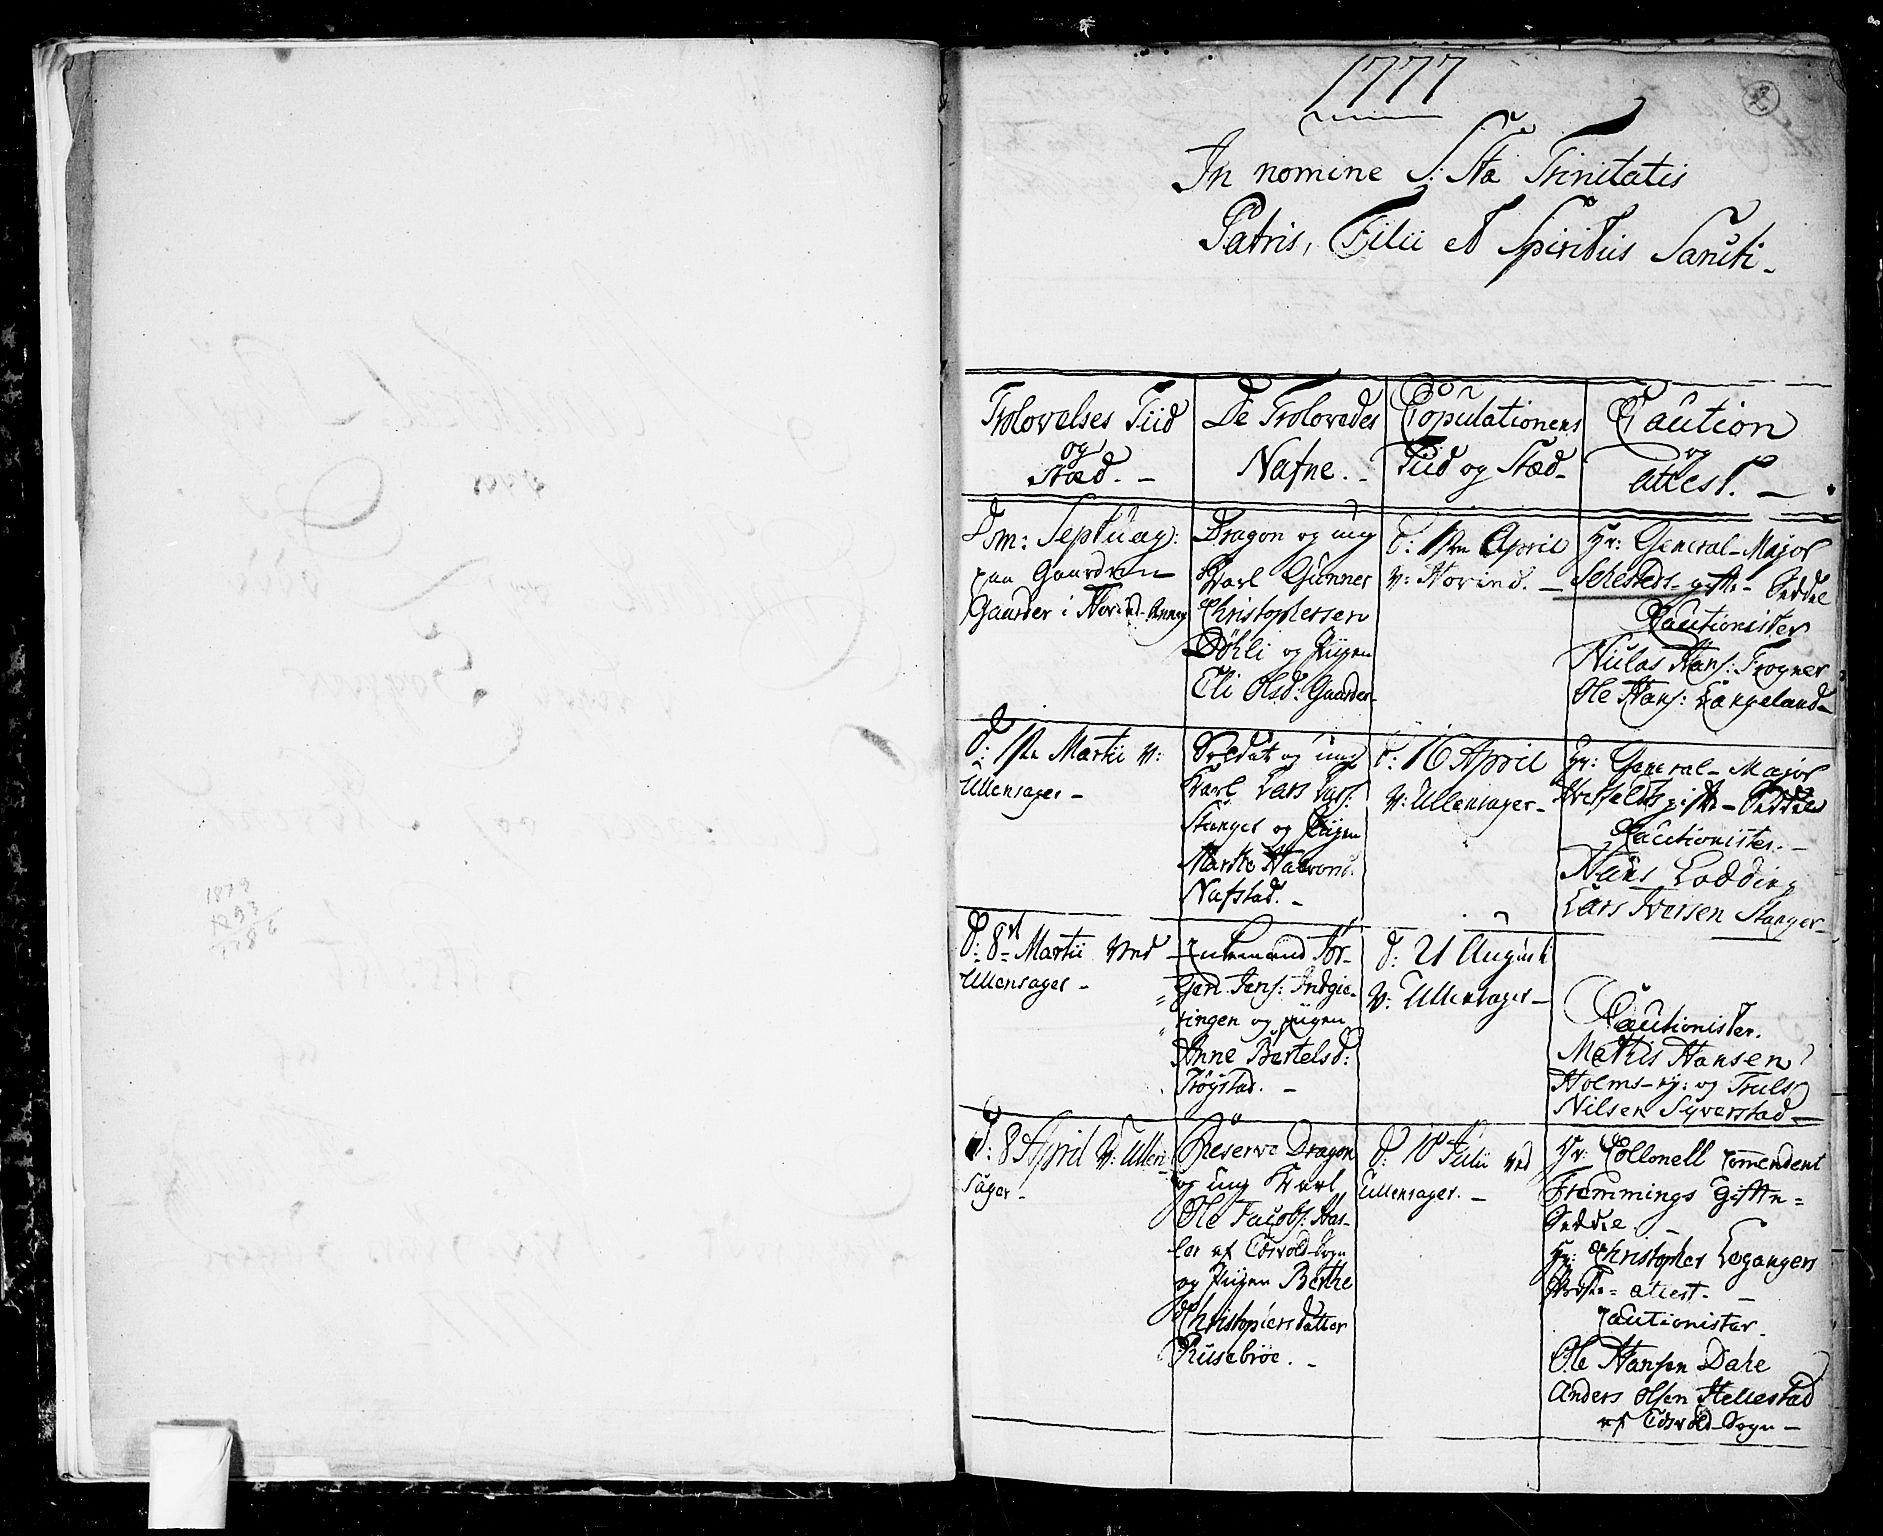 1777
2
In nomine S: Stæ Trinitatis
Patris, Filii et Spiritus Sancti.
Trolovelses Tiid
og
Stæd. -
De Trolovedes
Nafne. -
Copulationens
Tiid og Stæd -
Caution
og
attest. -
Dom: Septuag:
paa Gaarden
Gaarder i Hovind-Annex
Dragon og ung
Karl Gunner
Christophersen
Døhli og Piigen
Eli Olsd: Gaarder
d: 1ste April
v: Hovind. -
Hr: General-Major
Schesteds gifte-Seddel
Cautionister
Niclas Hans: Frogner
Ole Hans: Langeland -
d: 1ste Martii v:
Ullensager -
Soldat og ung
Karl Lars Lars:
Stanger og Piigen
Marthe Halvors:
Nafstad. -
d: 16 April
v: Ullensager -
Hr: General-Major
gifte-Seddel
Cautionister. -
Hans Lodding
Lars Iversen Stanger -
d: 8de Martii ved
Ullensager -
Enkemand Jør-
gen Jens: Indgie-
ringen og piigen
Anne Bertelsd:
Trøgstad. -
d: 21 August
v: Ullensager -
Cautionister.
Mathis Hansen
Holms-ey: og Truls
Nilsen Syverstad -
d: 8 April v: Ullen-
sager -
Reserve Dragon
og ung Karl
Ole Jacobs: Has-
ler af Edsvold-Sogn
og Piigen Berthe
Christophersdatter
Rusebroe. -
d: 10 Julii ved
Ullensager. -
Hr: Collonell Comendent
Fremmings Gifte-
Seddel. -
Hr: Christopher Leganger
Præste-attest. -
Cautionister.
Ole Hansen Dahe
Anders Olsen Hellestad
af Edsvold-Sogn -